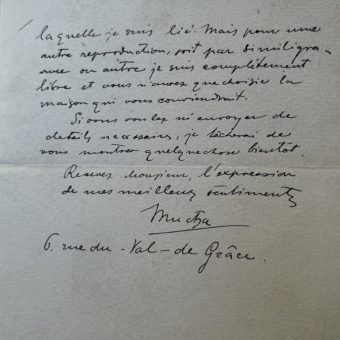 laquelle je suis lié. Mais pour une
autre reproduction, soit par similigra-
vure ou autre je suis complètement
libre et vous n'avez que choisir la
maison qui vous conviendrait.
Si vous voulez m'envoyer de
details necessaires, je tâcherai de
vous montrer quelque chose bientôt.
Recevez Monsieur, l'expression
de mes meilleurs sentiments
Mucha
6. rue du Val-de Grâce.